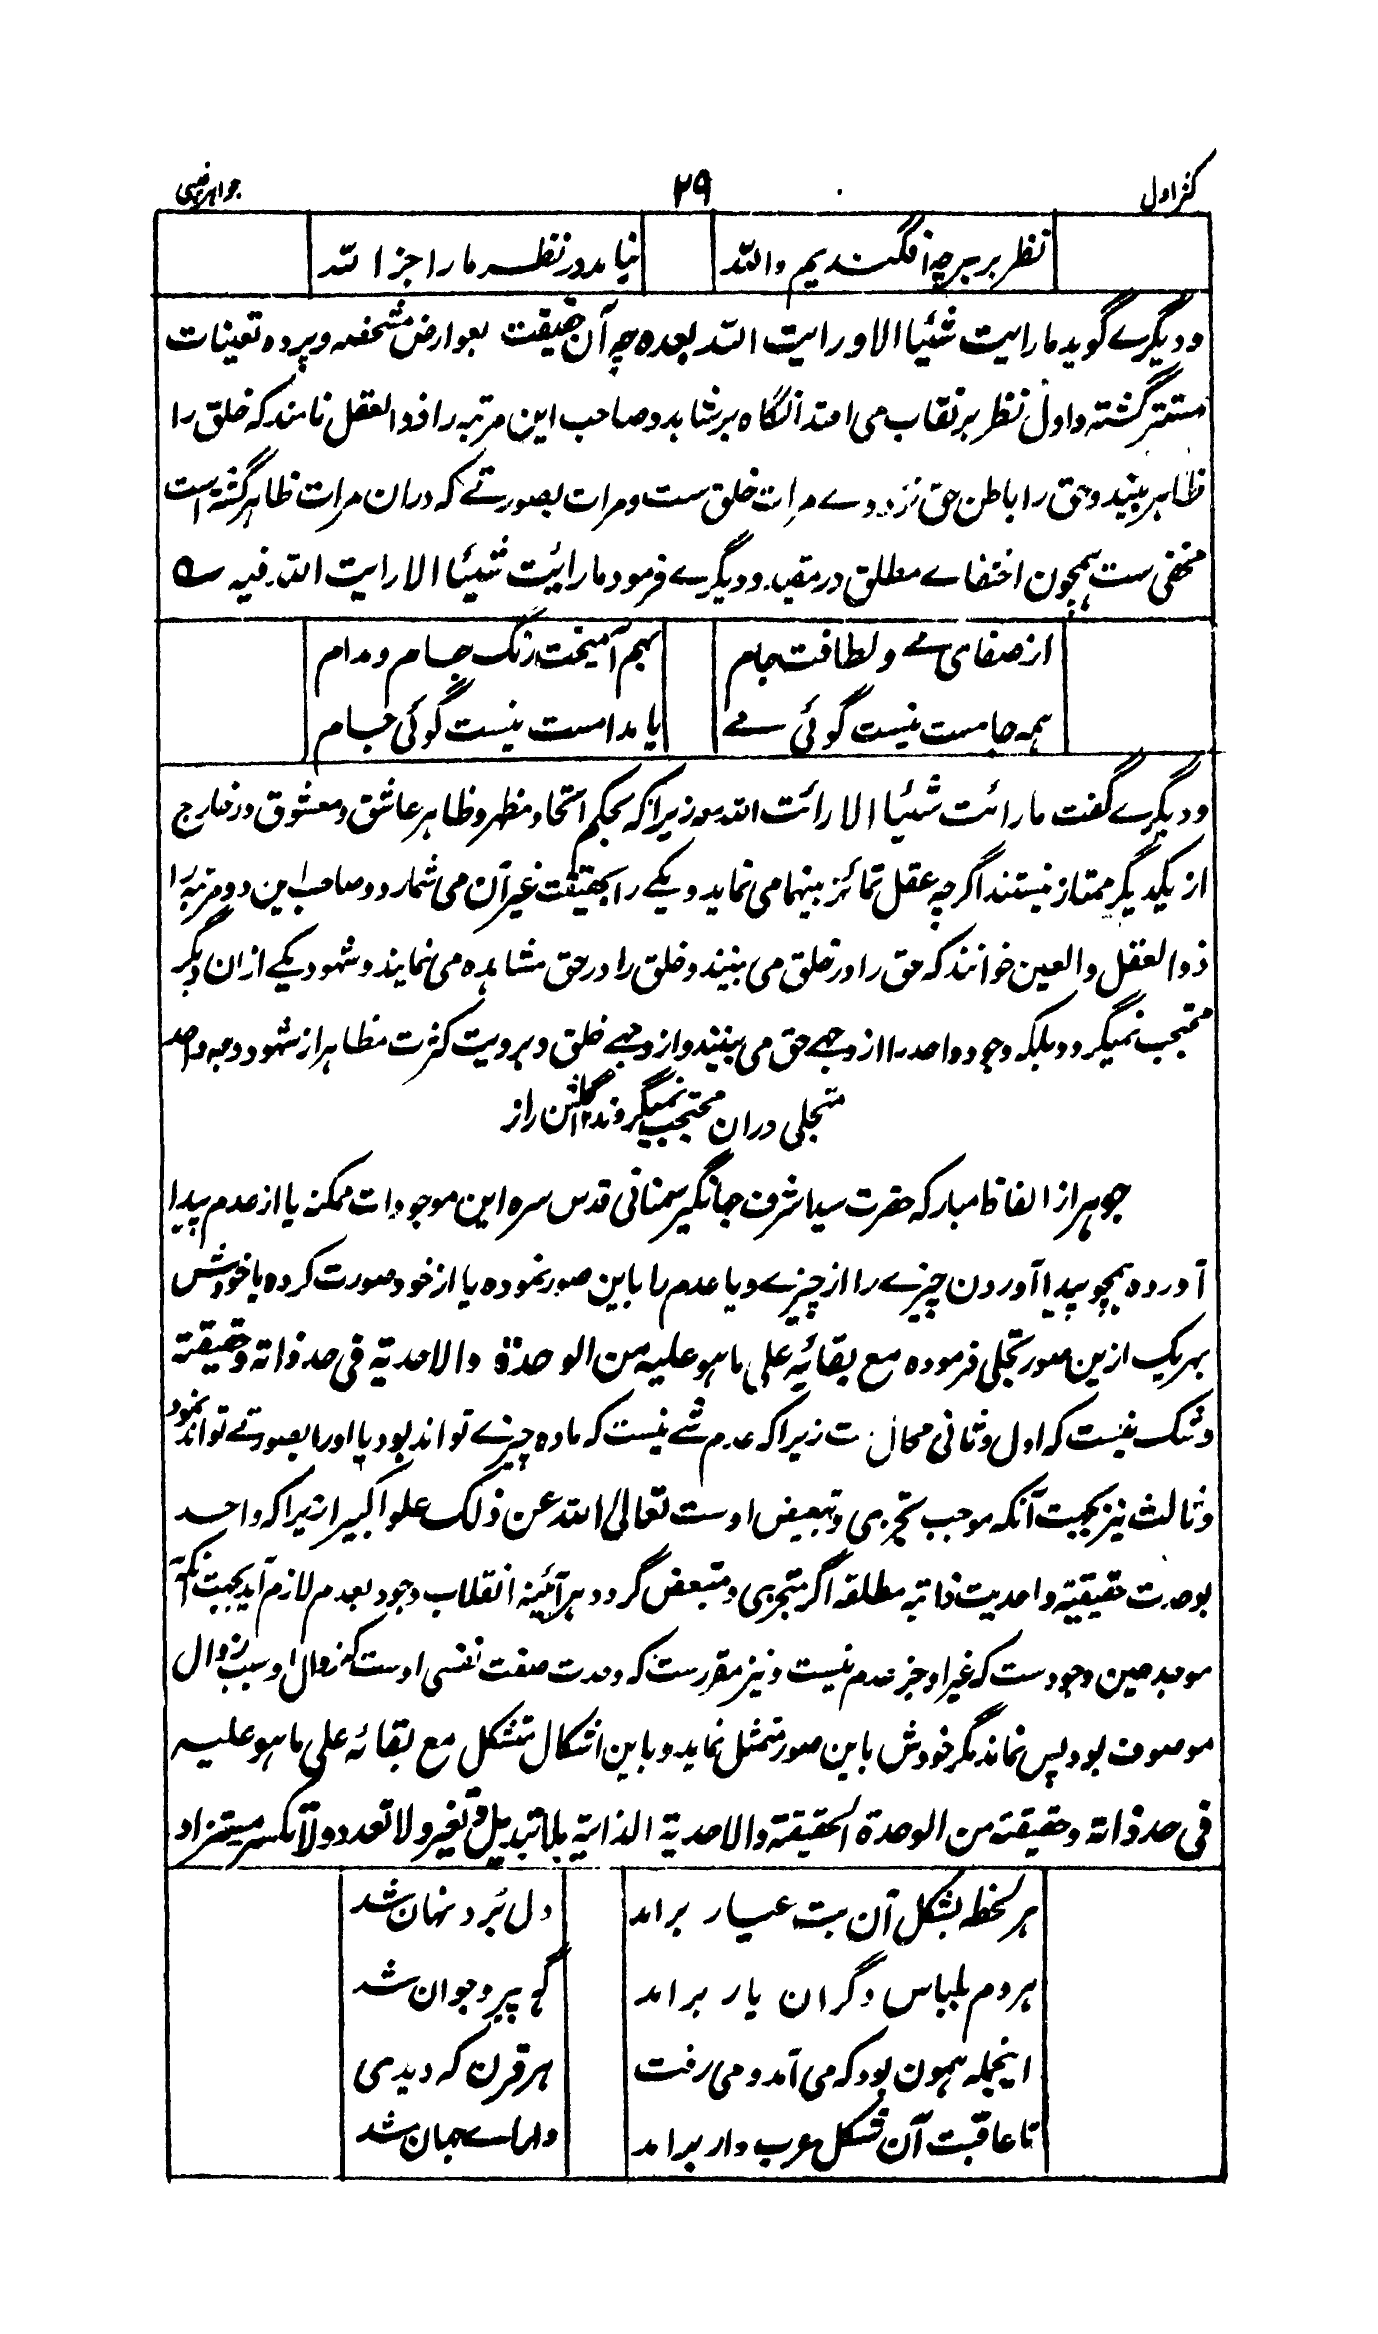 کنز اول ۲۹ جواهر غیبی
نظر بر هرچه افگندیم والله نیامد در نظر ما را جز الله
و دیگرے گوید ما رایت شئیا الا و رایت الله بعده چه آن حقیقت بعوارض مشخصه و پرده تعینات
مستتر گشته و اول نظر بر نقاب می افتد انگاه بر شاہد و صاحب این مرتبه را ذو العقل نامند که خلق را
ظاہر بیند و حق را باطن حق نزد وے مرات خلق ست و مرات بصورتے که دران مرات ظاہر گشته است
مخفی ست ہمچون اختفاے مطلق در مقید و دیگرے فرمود ما رائیت شیئا الا رایت الله فیه ے
از صفای مے و لطافت جام بہم آمیخت رنگ جام و مدام
ہمه جامست نیست گوئی مے یا مدامست نیست گوئی جام
و دیگرے گفت ما رائت شئیا الا رائت الله معه زیرا که بحکم اتحاد مظهر و ظاہر عاشق و معشوق در خارج
از یکدیگر ممتاز نیستند اگرچه عقل تمائز بینہما می نماید و یکے را بحقیقت غیر آن می شمارد و صاحب این دو مرتبه را
ذو العقل و العین خوانند که حق را در خلق می بینند و خلق را در حق مشاہده می نمایند و شہود یکے از ان دیگر
محتجب نمیگردد بلکه وجود واحد را از وجہے حق می بینند و از وجہے خلق و برویت کثرت مظاہر از شہود وجه واحد
متجلی دران محتجب نمیگروند گلشن راز
جوہر از الفاظ مبارکه حضرت سید اشرف جہانگیر سمنانی قدس سره این موجودات ممکنه یا از عدم پیدا
آورده ہمچو پیدا آوردن چیزے را از چیزے و یا عدم را باین صور نموده یا از خود صورت کرده یا خودش
بہریک ازین صور تجلی فرموده مع بقائیه علی ما ہو علیه من الوحدة والاحدیة فی حد ذاته و حقیقته
و شک نیست که اول و ثانی محال ست زیرا که عدم شے نیست که ماده چیزے تواند بود یا او را بصورتے تواند نمود
و ثالث نیز بجہت آنکه موجب تجزی و تبعیض اوست تعالی الله عن ذلک علوا کبیرا زیرا که واحد
بوحدت حقیقیة و احدیت ذاتیه مطلقه اگر متجزی و متبعض گردد ہر آئینه انقلاب وجود بعدم لازم آید بجہت آنکه
موجد عین وجودست که غیر او جز عدم نیست و نیز مقررست که وحدت صفت نفسی اوست که زوال او سبب زوال
موصوف بود پس نماند مگر خودش باین صور متمثل نماید و باین اشکال متشکل مع بقائه علی ما ہو علیه
فی حد ذاته و حقیقته من الوحدة الحقیقته والاحدیة الذاتیه بلا تبدیل و تغیر ولا تعدد ولا تکسر مستزاد
ہر لحظه بشکل آن بت عیار برامد دل بُرد و نہان شد
ہردم بلباس دگران یار برامد گہے پیر و جوان شد
اینجمله ہمون بود که می آمد و می رفت ہر قرن که دیدی
تا عاقبت آن شکل عرب وار برامد داراے جہان شد